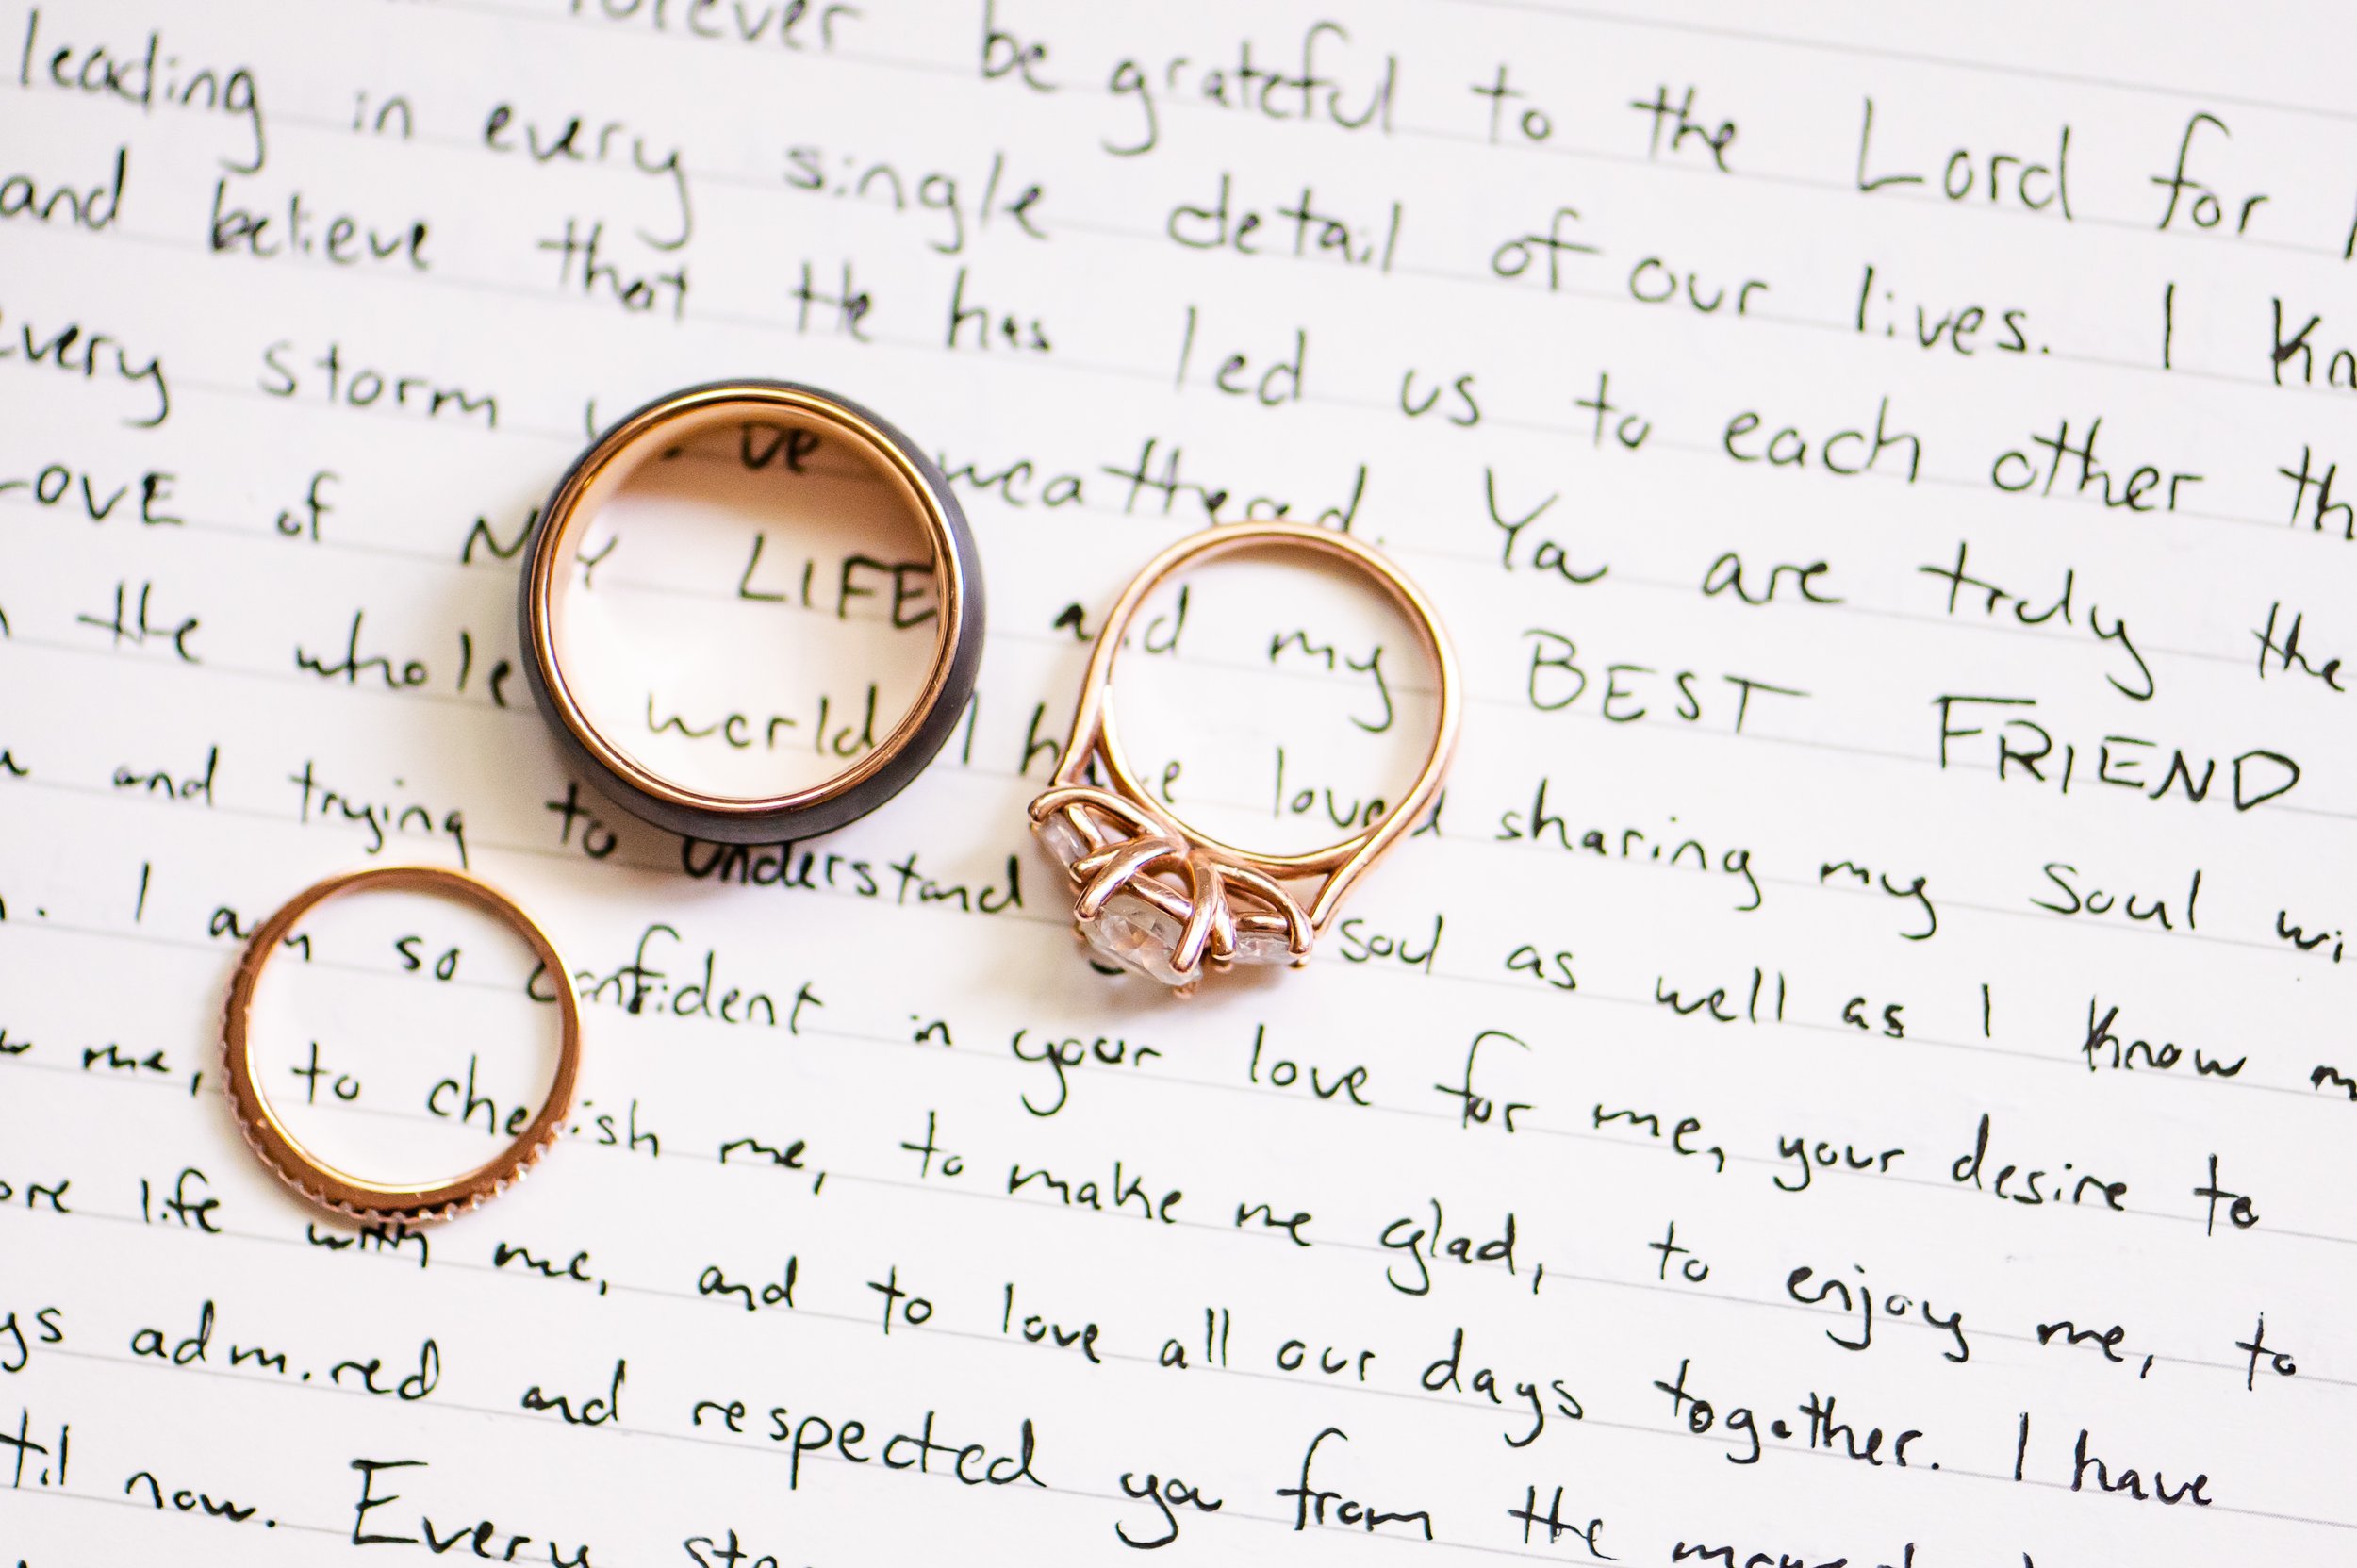 forever be grateful to the Lord for
leading in every single detail of our lives. I Kn
and believe that He has led us to each other th
every storm weathered. You are truly the
LOVE of MY LIFE and my BEST FRIEND
the whole world I have loved sharing my soul wi
and trying to understand soul as well as I know m
I am so confident in your love for me, your desire to
me, to cherish me, to make me glad, to enjoy me, to
ore life with me, and to love all our days together. I have
ys admired and respected you from the
til now. Every